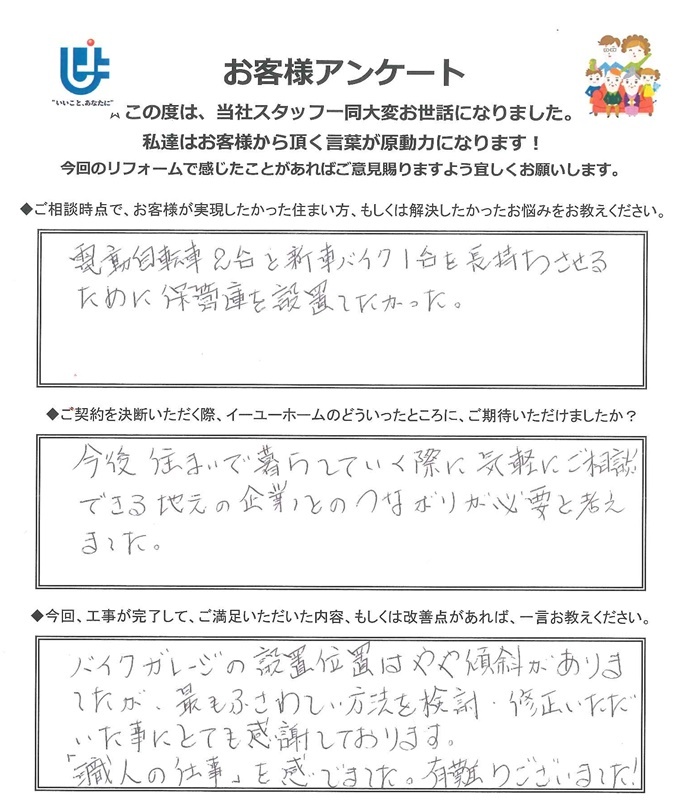 お客様アンケート
"いいこと、あなたに"
この度は、当社スタッフ一同大変お世話になりました。
私達はお客様から頂く言葉が原動力になります！
今回のリフォームで感じたことがあればご意見賜りますよう宜しくお願いします。
◆ご相談時点で、お客様が実現したかった住まい方、もしくは解決したかったお悩みをお教えください。
電動自転車2台と新車バイク1台を長持ちさせる
ために保管庫を設置したかった。
◆ご契約を決断いただく際、イーユーホームのどういったところに、ご期待いただけましたか？
今後住まいで暮らしていく際に気軽にご相談
できる地元の企業とのつながりが必要と考え
ました。
◆今回、工事が完了して、ご満足いただいた内容、もしくは改善点があれば、一言お教えください。
バイクガレージの設置位置はやや傾斜がありま
したが、最もふさわしい方法を検討・修正いただ
いた事にとても感謝しております。
「職人の仕事」を感じました。有難うございました!